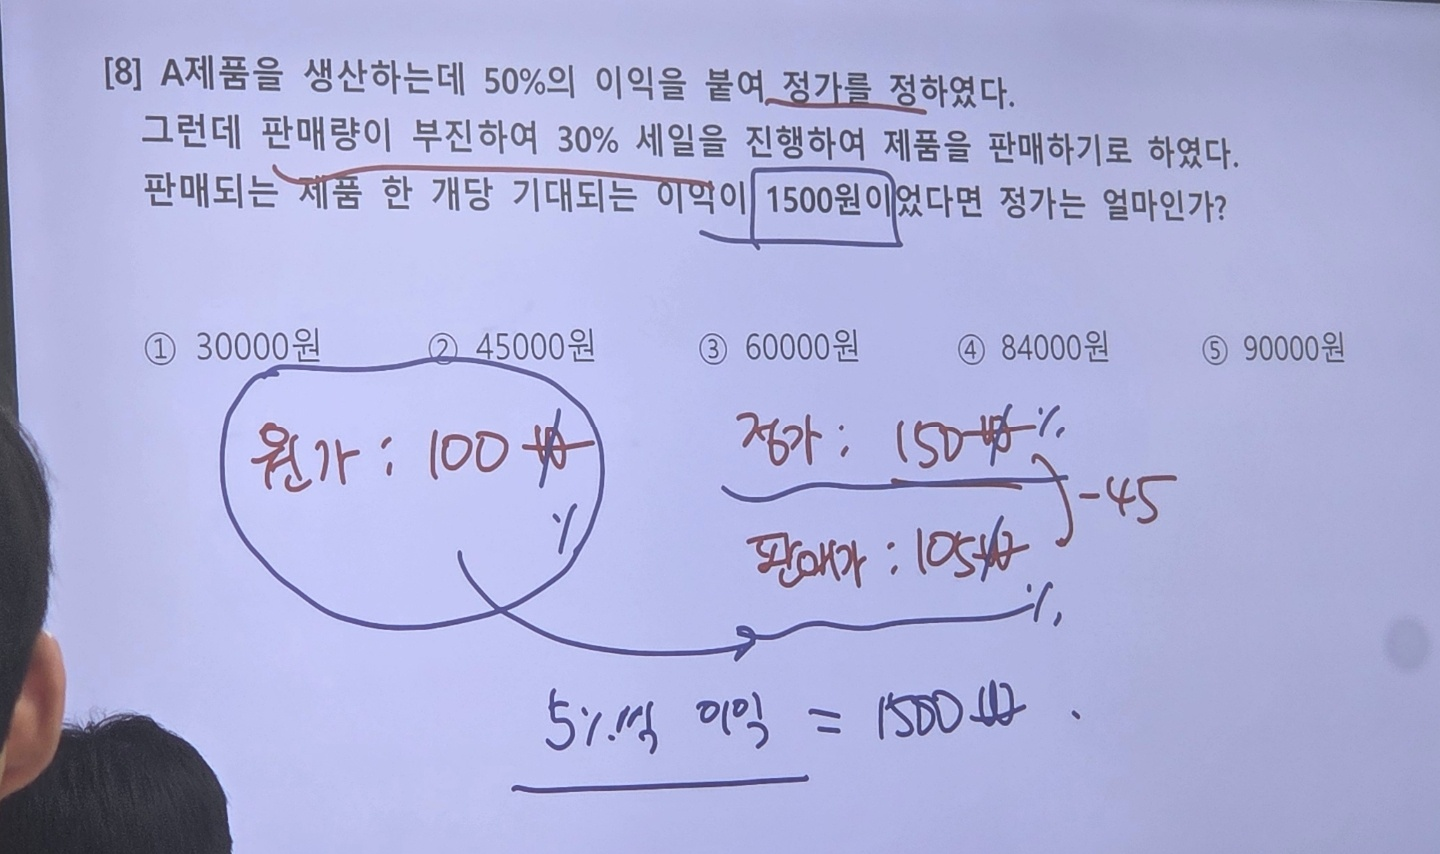 [8] A제품을 생산하는데 50%의 이익을 붙여 정가를 정하였다.
그런데 판매량이 부진하여 30% 세일을 진행하여 제품을 판매하기로 하였다.
판매되는 제품 한 개당 기대되는 이익이 1500원이었다면 정가는 얼마인가?
① 30000원 ② 45000원 ③ 60000원 ④ 84000원 ⑤ 90000원
원가 : 100 ₩ %
정가 : 150 ₩ %
-45
판매가 : 105 ₩ %
5%씩 이익 = 1500 ₩.